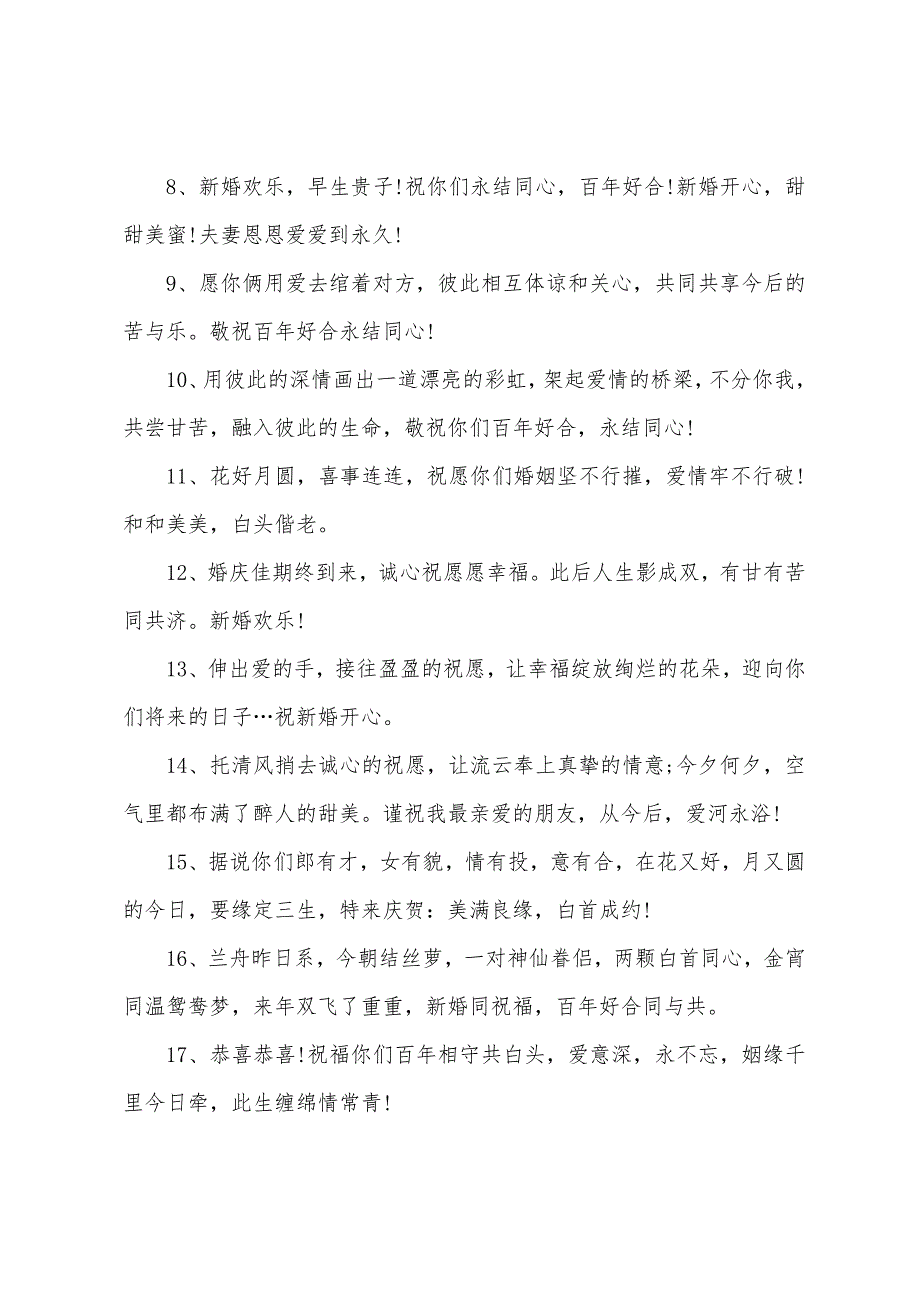 8、新婚欢乐，早生贵子!祝你们永结同心，百年好合!新婚开心，甜
甜美蜜!夫妻恩恩爱爱到永久!
9、愿你俩用爱去绾着对方，彼此相互体谅和关心，共同共享今后的
苦与乐。敬祝百年好合永结同心!
10、用彼此的深情画出一道漂亮的彩虹，架起爱情的桥梁，不分你我，
共尝甘苦，融入彼此的生命，敬祝你们百年好合，永结同心!
11、花好月圆，喜事连连，祝愿你们婚姻坚不行摧，爱情牢不行破!
和和美美，白头偕老。
12、婚庆佳期终到来，诚心祝愿愿幸福。此后人生影成双，有甘有苦
同共济。新婚欢乐!
13、伸出爱的手，接往盈盈的祝愿，让幸福绽放绚烂的花朵，迎向你
们将来的日子…祝新婚开心。
14、托清风捎去诚心的祝愿，让流云奉上真挚的情意;今夕何夕，空
气里都布满了醉人的甜美。谨祝我最亲爱的朋友，从今后，爱河永浴!
15、据说你们郎有才，女有貌，情有投，意有合，在花又好，月又圆
的今日，要缘定三生，特来庆贺：美满良缘，白首成约!
16、兰舟昨日系，今朝结丝萝，一对神仙眷侣，两颗白首同心，金宵
同温鸳鸯梦，来年双飞了重重，新婚同祝福，百年好合同与共。
17、恭喜恭喜!祝福你们百年相守共白头，爱意深，永不忘，姻缘千
里今日牵，此生缠绵情常青!